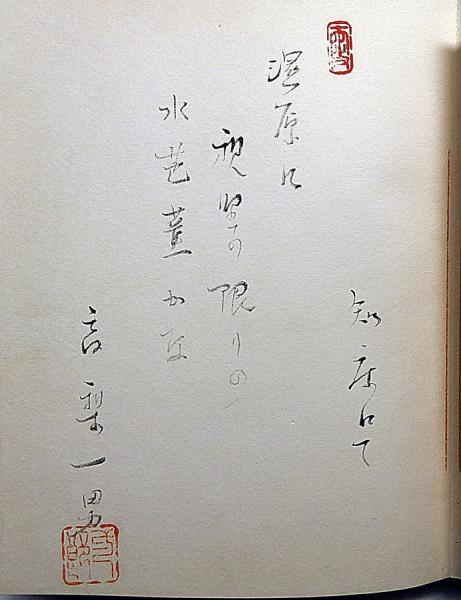 知床にて
湿原に
視野の限りの
水芭蕉かな
高梨一男